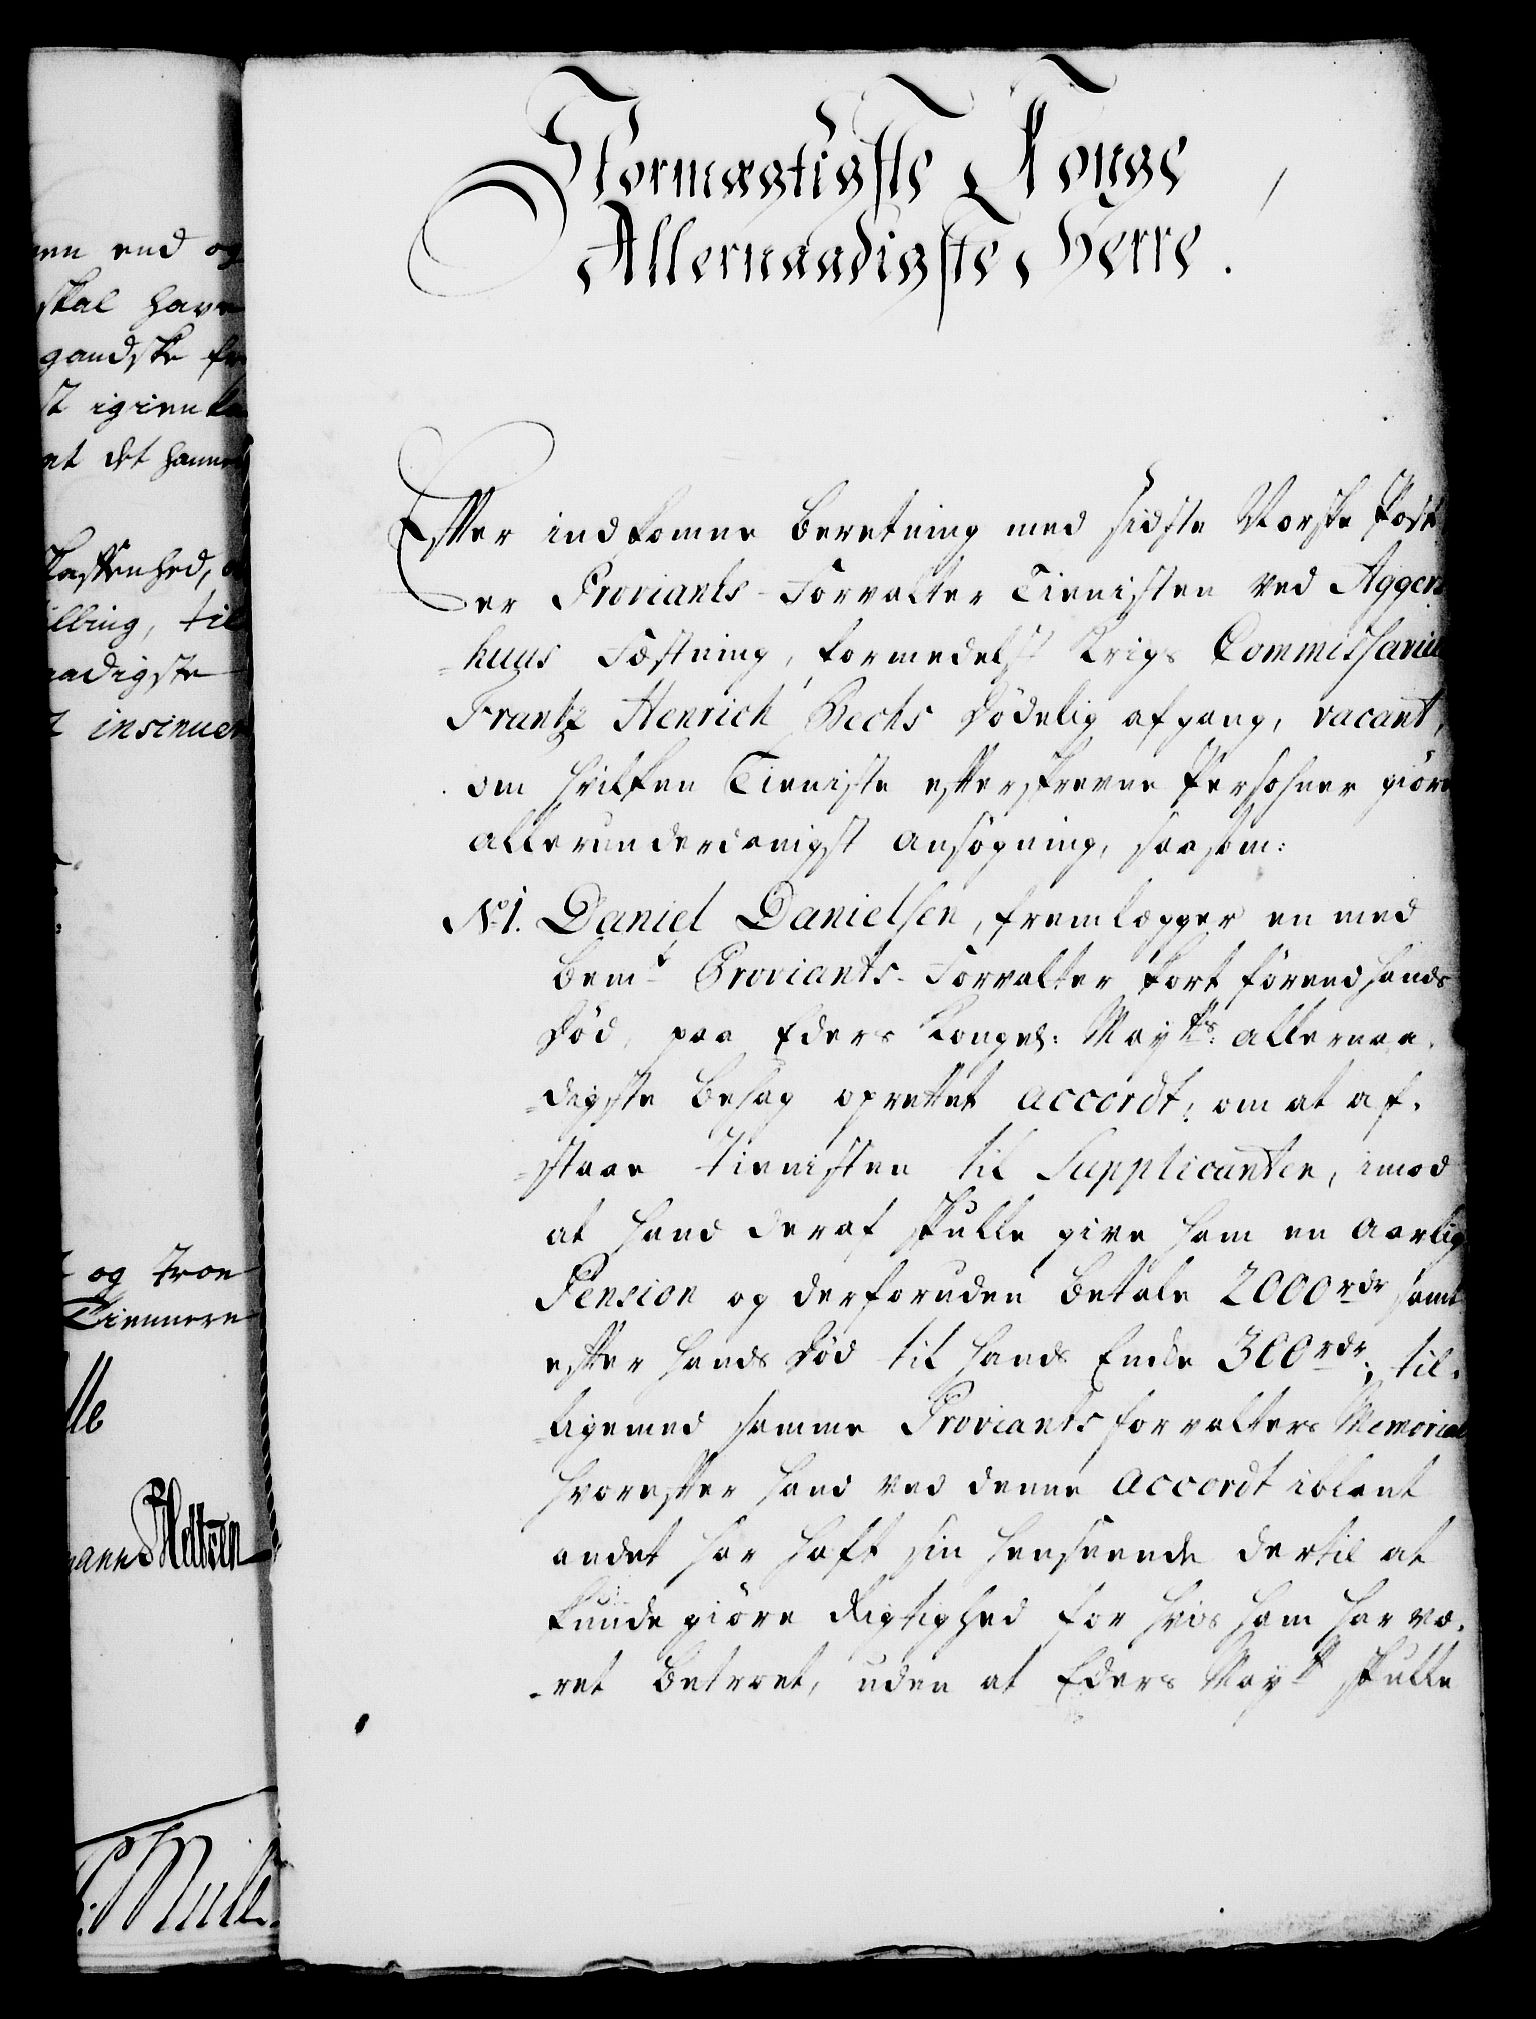 nen end og
skal have
gandske
igien
at det hannem
kastenhed,
illing, til
aadigste
insinuer
og troe
Tiennere
lle
Mule
Stormægtigste Konge
Allernaadigste Herre.
Efter indkomne beretning med sidste Norske Post
er Proviants-Forvalter Tienisten ved Aggers
-huus Fæstning, formedelst Krigs Commissarius
Frantz Henrich Bechs dödelig afgang, vacant,
om hvilken Tieniste efterskrevne Persohner giöre
allerunderdanigst ansögning, saasom:
No 1. Daniel Danielsen, fremlægger en med
bemt Proviants-Forvalter kort förend hands
död, paa Eders Kongel: Mayts: allernaa-
-digste behag oprettet accordt; om at af-
-staae tienisten til Supplicanten, imod
at hand deraf skulle give ham en aarlig
Pension og derforuden betale 2000 rdr samt
efter hands död til hands Encke 300 rdr; til-
-ligemed samme Proviantsforvalters Memorial
hvorefter hand ved denne accordt iblant
andet har haft sin henseende dertil at
kunde giöre Rigtighed for hvis ham har væ-
-ret betroet, uden at Eders Mayts skulle